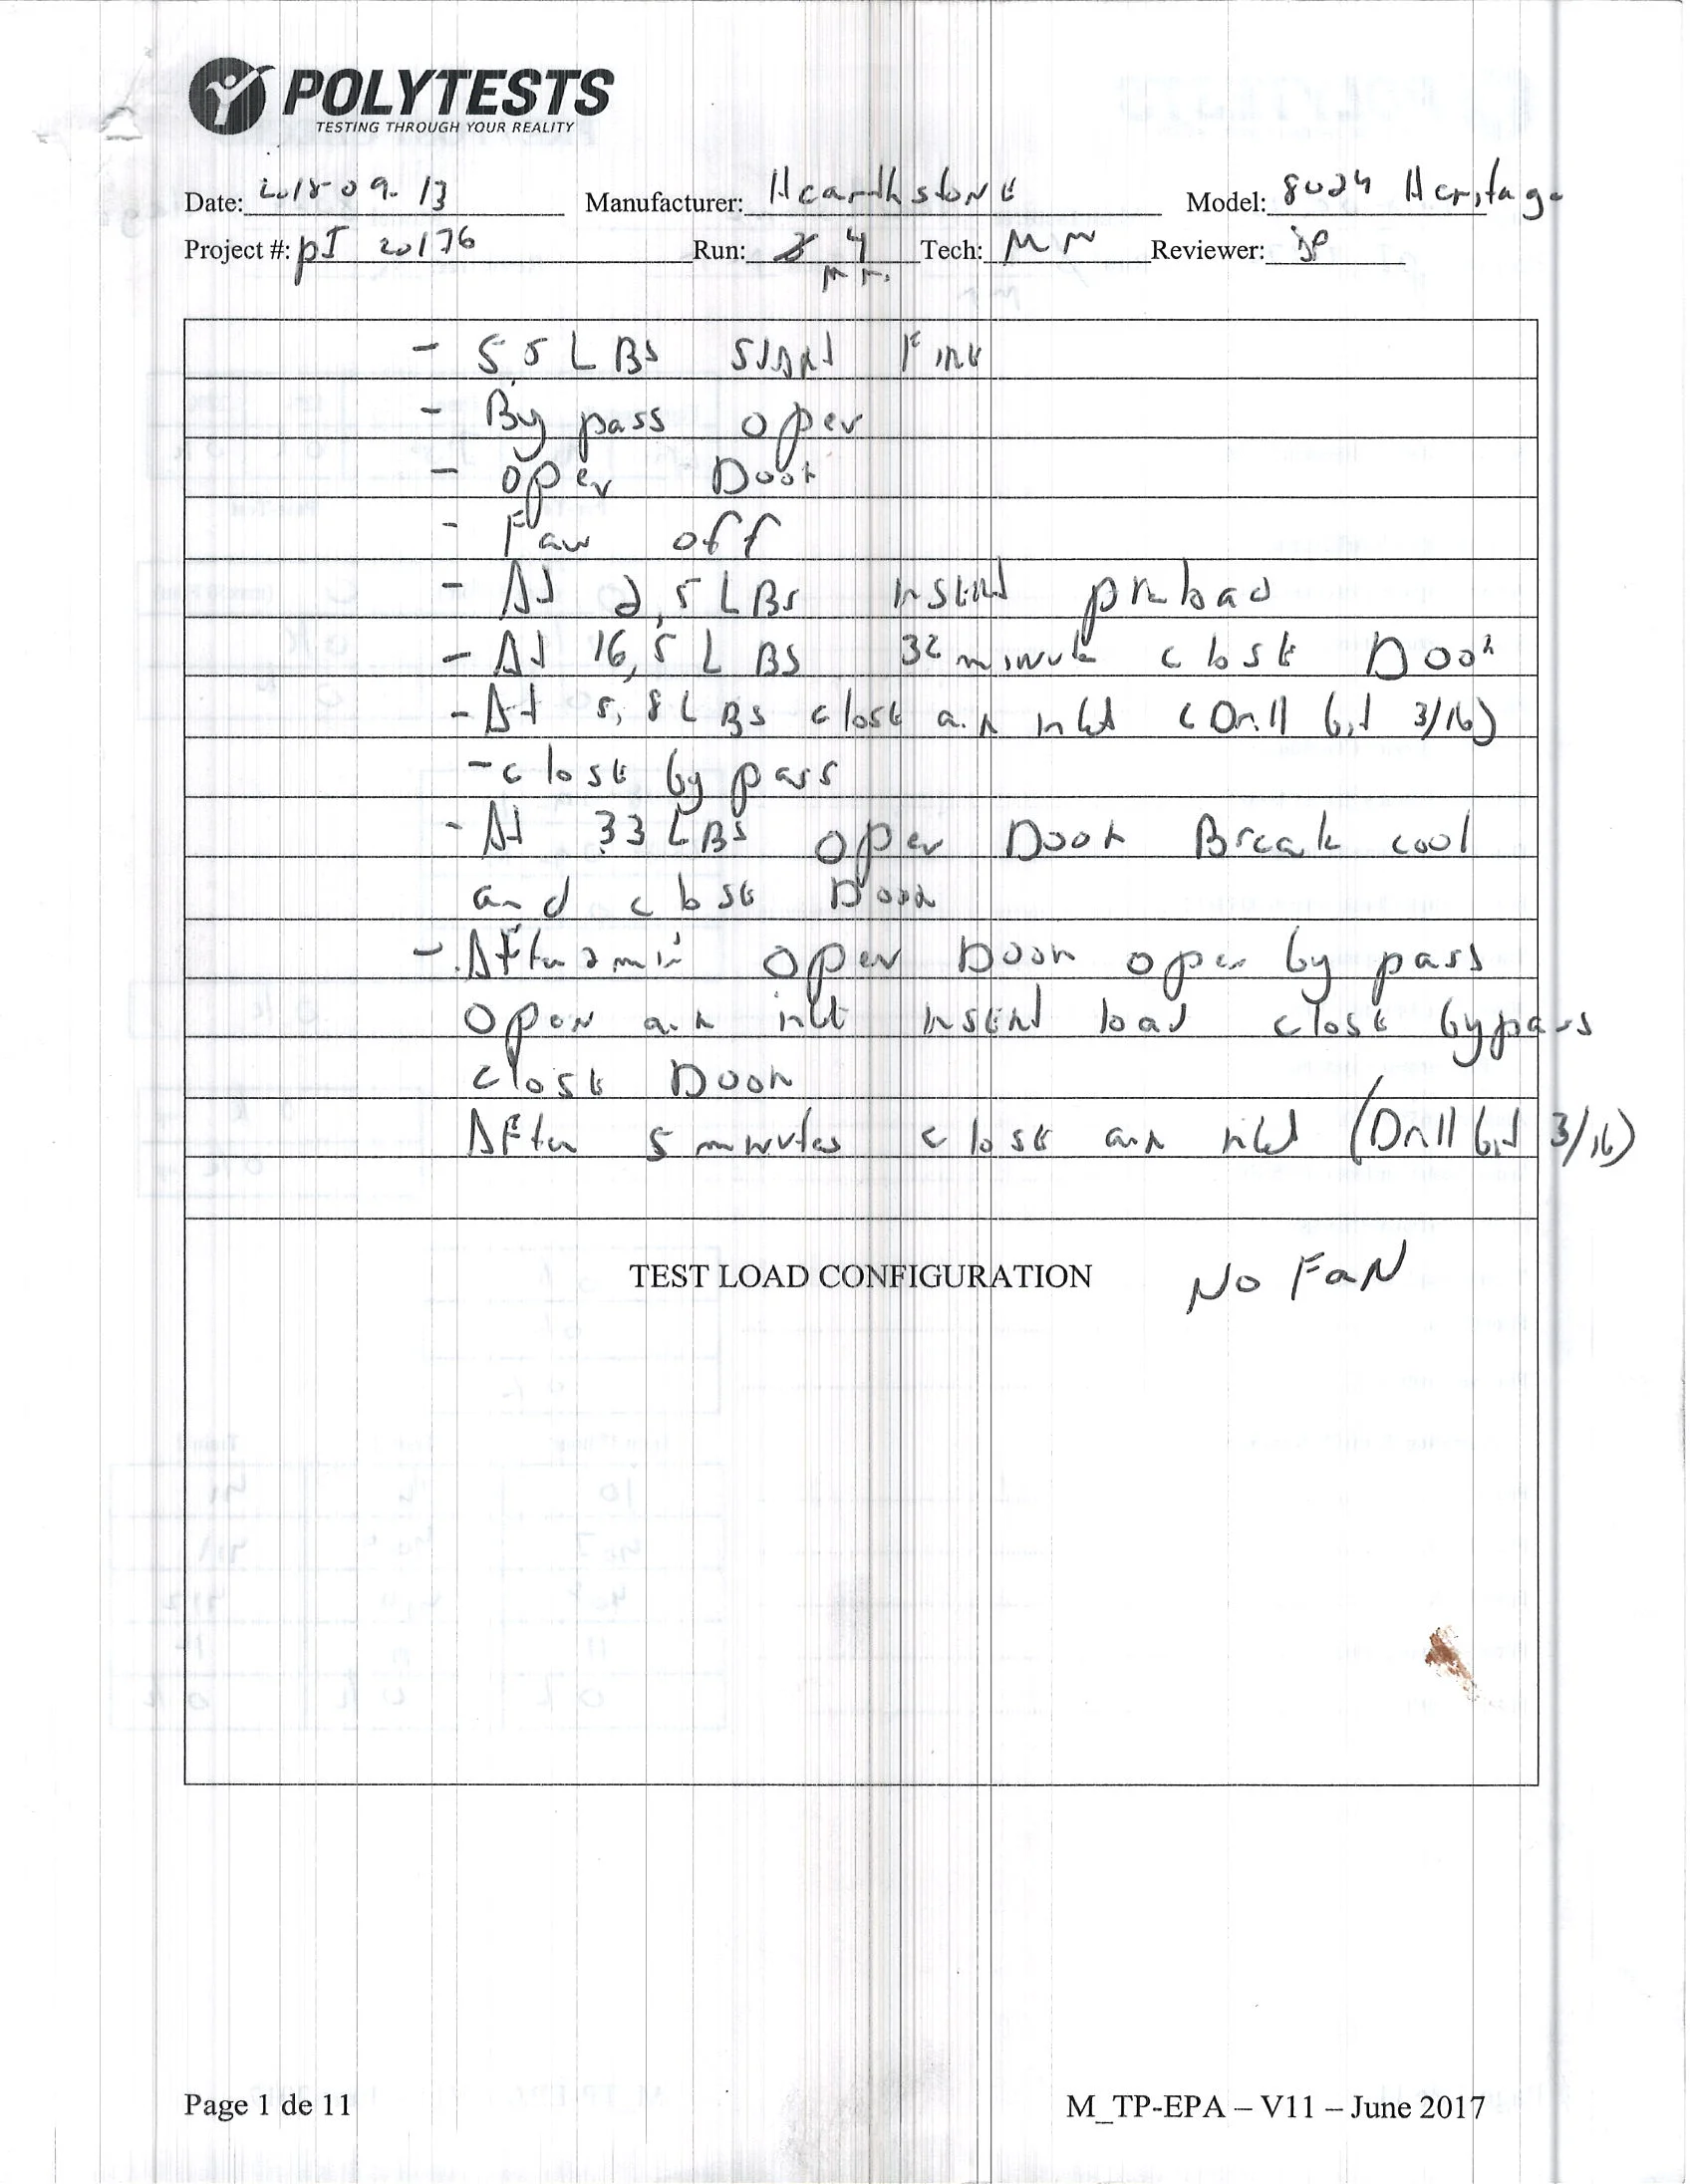 POLYTESTS
TESTING THROUGH YOUR REALITY
Date: 2018-09-13 Manufacturer: HearthstoNE Model: 8024 Heritage
Project #: pI 20176 Run: 4 Tech: MM Reviewer:
- 5,5 LBS START FIRE
- By pass open
- open Door
- Fan off
- At 2,5 LBS INSERT preload
- At 16,5 LBS 32 minute close Door
- At 5,8 LBS close air inlet (Drill bit 3/16)
- close by pass
- At 33 LBS open Door Break cool
and close Door
- After 2 min open Door open by pass
open air inlet INSERT load close bypass
close Door
After 5 minutes close air inlet (Drill bit 3/16)
TEST LOAD CONFIGURATION No FaN
Page 1 de 11 M_TP-EPA – V11 – June 2017